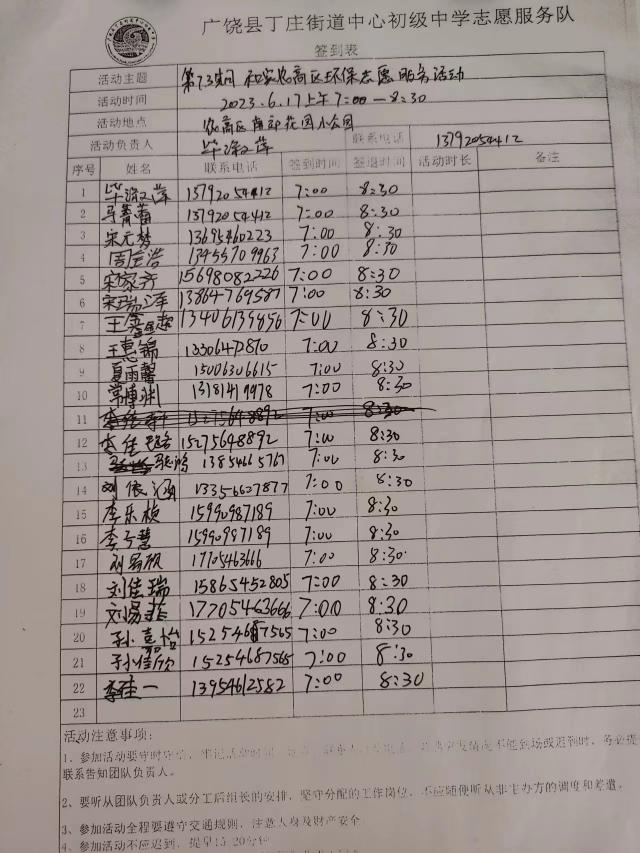 广饶县丁庄街道中心初级中学志愿服务队
签到表
活动主题 第73期 和家农商区环保志愿服务活动
活动时间 2023.6.17上午7:00—8:30
活动地点 农商区南部花园小公园
活动负责人 联系电话 13792054412
序号 姓名 联系电话 签到时间 签退时间 活动时长 备注
1 13792054412 7:00 8:30
2 马菁蕾 13792054412 7:00 8:30
3 宋元梦 13695460223 7:00 8:30
4 13455709963 7:00 8:30
5 宋家齐 15698082226 7:00 8:30
6 13864769587 7:00 8:30
7 13406135856 7:00 8:30
8 王惠锦 7:00 8:30
9 夏雨馨 15006306615 7:00 8:30
10 常博渊 13181419978 7:00 8:30
11 15275648892 7:00 8:30
12 李佳 15275648892 7:00 8:30
13 13854665767 7:00 8:30
14 刘依涵 13356607877 7:00 8:30
15 李乐桢 15990987189 7:00 8:30
16 李子慧 15990987189 7:00 8:30
17 17705463666 7:00 8:30
18 刘佳瑞 15865452805 7:00 8:30
19 刘易菲 17705463666 7:00 8:30
20 孙嘉怡 15254687565 7:00 8:30
21 孙佳欣 15254687565 7:00 8:30
22 李佳一 13954612582 7:00 8:30
23
活动注意事项:
1、参加活动要守时守信，牢记活动时间 不能到场或迟到时，务必提
联系告知团队负责人。
2、要听从团队负责人或分工后组长的安排，坚守分配的工作岗位，不应随便听从非主办方的调度和差遣。
3、参加活动全程要遵守交通规则，注意人身及财产安全
4、参加活动不应迟到，提早15-20分钟